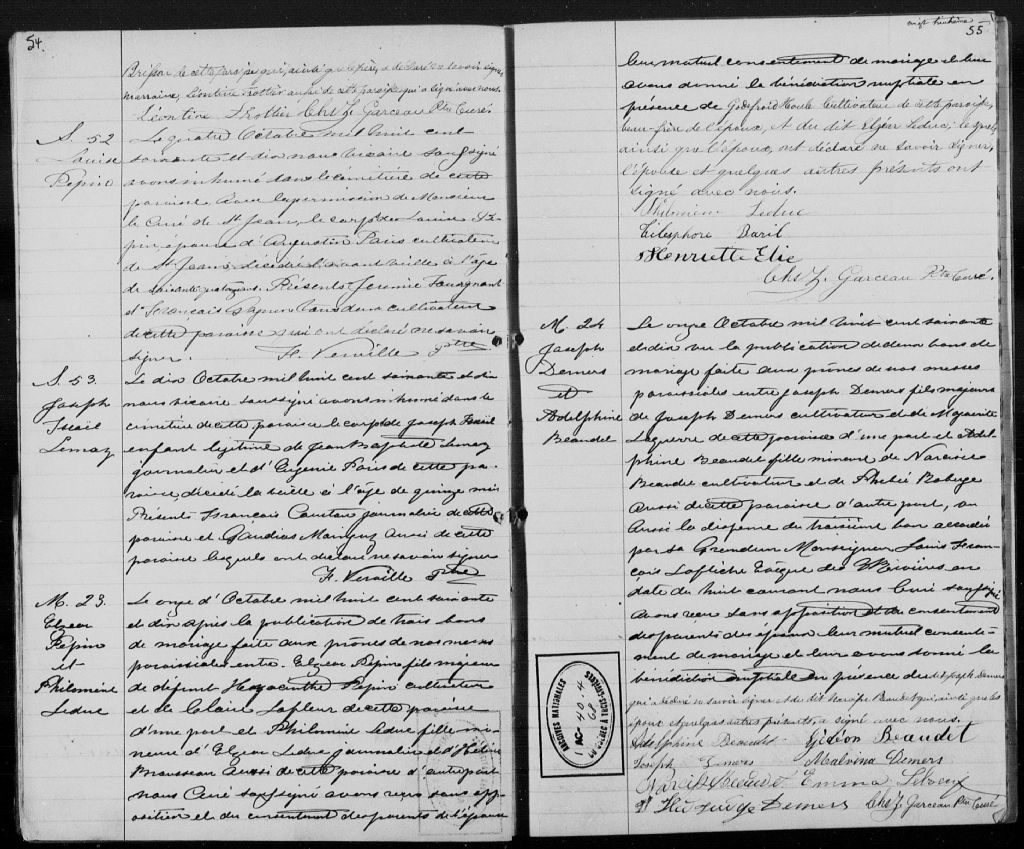 54.
Brisson de cette paroisse qui, ainsi que le père, a déclaré ne savoir signer,
marraine, Léontine Trottier aussi de cette paroisse qui a signé avec nous.
Léontine Trottier Chs Z. Garceau Ptre Curé
S. 52
Louise
Pepin
Le quatre Octobre mil huit cent
soixante et dix nous vicaire soussigné
avons inhumé dans le cimetière de cette
paroisse avec la permission de Monsieur
le Curé de St Jean, le corps de Louise Pe
pin, épouse d'Augustin Paris cultivateur
de St Jean décédée l'avant veille à l'âge
de soixante quatorze ans. Présents Jérémie
et François cultivateurs
de cette paroisse qui ont déclaré ne savoir
signer. H. Verville Ptre
S. 53.
Joseph
Israël
Lemay
Le dix Octobre mil huit cent soixante et dix
nous vicaire soussigné avons inhumé dans le
cimetière de cette paroisse le corps de Joseph Israël
enfant légitime de Jean Baptiste Lemay
journalier et d'Eugénie Paris de cette pa-
roisse, décédé la veille à l'âge de quinze mois
Présents François journalier de cette
paroisse et aussi de cette
paroisse lesquels ont déclaré ne savoir signer
H. Verville Ptre
M. 23.
Elzear
Pepin
et
Philomène
Leduc
Le onze d'Octobre mil huit cent soixante
et dix après la publication de trois bans
de mariage faite aux prônes de nos messes
paroissiales entre Elzear Pepin fils majeur
de défunt Hyacinthe Pepin cultivateur
et de Claire Lafleur de cette paroisse
d'une part et Philomène Leduc fille mi-
neure d'Elzear Leduc journalier et d'Hélène
Brousseau aussi de cette paroisse d'autre part
nous Curé soussigné avons reçu sans oppo
sition et du consentement des parents de l'épouse
vingt huitième
55
leur mutuel consentement de mariage et leur
avons donné la bénédiction nuptiale en
présence de Godefroid Houle cultivateur de cette paroisse,
beau-frère de l'époux, et du dit Elzéar Leduc, lesquels
ainsi que l'époux, ont déclaré ne savoir signer,
l'épouse et quelques autres présents ont
signé avec nous.
Philomène Leduc
Télesphore Baril
Henriette Elie
Chs Z. Garceau Ptre Curé.
M. 24
Joseph
Demers
et
Adelphine
Beaudet
Le onze Octobre mil huit cent soixante
et dix vu la publication de deux bans de
mariage faite aux prônes de nos messes
paroissiales entre Joseph Demers fils majeur
de Joseph Demers cultivateur et de Marguerite
Laguerre de cette paroisse d'une part et Adel-
phine Beaudet fille mineure de Narcisse
Beaudet cultivateur et de Phébée Baberge
aussi de cette paroisse d'autre part, vu
aussi la dispense du troisième ban accordée
par Sa Grandeur Monseigneur Louis Fran
çois Laflèche Evêque des T Rivières en
date du huit courant nous Curé soussigné
avons reçu sans opposition et du consentement
des parents des époux leur mutuel consente-
ment de mariage et leur avons donné la
bénédiction nuptiale en présence du dit Joseph Demers
qui a déclaré ne savoir signer et du dit Narcisse Beaudet qui, ainsi que les
époux et quelques autres présents, a signé avec nous.
Adelphine Beaudet Gédéon Beaudet
Joseph Demers Malvina Demers
Narcisse Beaudet Emma
Demers Chs Z. Garceau Ptre Curé
ARCHIVES NATIONALES
AC-40-4
68